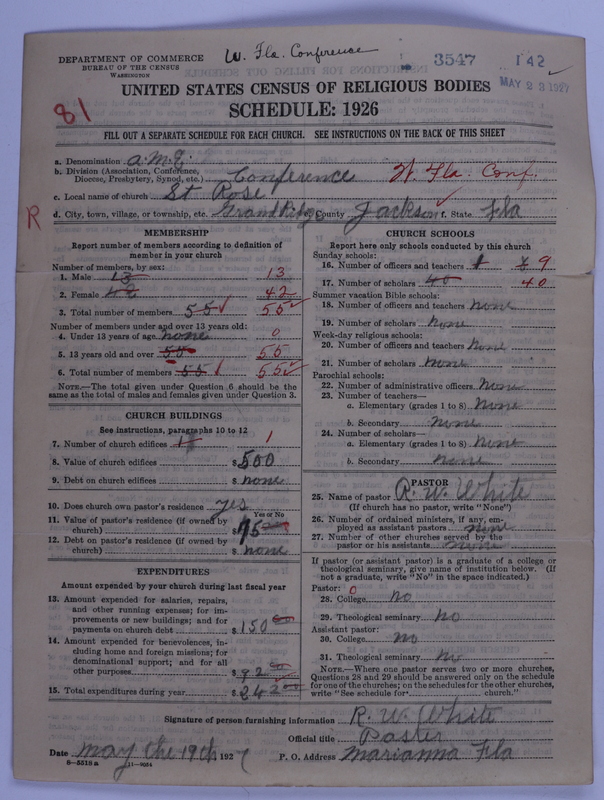 DEPARTMENT OF COMMERCE
BUREAU OF THE CENSUS
WASHINGTON
W. Fla. Conference
3547
142
MAY 23 1927
81
UNITED STATES CENSUS OF RELIGIOUS BODIES
SCHEDULE: 1926
FILL OUT A SEPARATE SCHEDULE FOR EACH CHURCH. SEE INSTRUCTIONS ON THE BACK OF THIS SHEET
a. Denomination A.M.E.
b. Division (Association, Conference, Diocese, Presbytery, Synod, etc.) Conference W. Fla. Conf.
c. Local name of church St Rose
R
d. City, town, village, or township, etc. Grand Ridge e. County Jackson f. State Fla
MEMBERSHIP
Report number of members according to definition of member in your church
Number of members, by sex:
1. Male 13 13
2. Female 42 42
3. Total number of members 55 55
Number of members under and over 13 years old:
4. Under 13 years of age none 0
5. 13 years old and over 55 55
6. Total number of members 55 55
NOTE.—The total given under Question 6 should be the same as the total of males and females given under Question 3.
CHURCH BUILDINGS
See instructions, paragraphs 10 to 12
7. Number of church edifices 1
8. Value of church edifices $500
9. Debt on church edifices $none
10. Does church own pastor's residence yes
Yes or No
11. Value of pastor's residence (if owned by church) $
12. Debt on pastor's residence (if owned by church) $none
EXPENDITURES
Amount expended by your church during last fiscal year
13. Amount expended for salaries, repairs, and other running expenses; for improvements or new buildings; and for payments on church debt $150 00
14. Amount expended for benevolences, including home and foreign missions; for denominational support; and for all other purposes $92 00
15. Total expenditures during year $242 00
CHURCH SCHOOLS
Report here only schools conducted by this church
Sunday schools:
16. Number of officers and teachers 9
17. Number of scholars 40 40
Summer vacation Bible schools:
18. Number of officers and teachers none
19. Number of scholars none
Week-day religious schools:
20. Number of officers and teachers none
21. Number of scholars none
Parochial schools:
22. Number of administrative officers none
23. Number of teachers—
a. Elementary (grades 1 to 8) none
b. Secondary none
24. Number of scholars—
a. Elementary (grades 1 to 8) none
b. Secondary none
PASTOR
25. Name of pastor R. W. White
(If church has no pastor, write "None")
26. Number of ordained ministers, if any, employed as assistant pastors none
27. Number of other churches served by the pastor or his assistants none
If pastor (or assistant pastor) is a graduate of a college or theological seminary, give name of institution below. (If not a graduate, write "No" in the space indicated.)
Pastor: 0
28. College no
29. Theological seminary no
Assistant pastor:
30. College no
31. Theological seminary no
NOTE.—Where one pastor serves two or more churches, Questions 28 and 29 should be answered only on the schedule for one of the churches; on the schedules for the other churches, write "See schedule for church."
Signature of person furnishing information R. W. White
Official title Paster
Date may the 19th 1927 P. O. Address Marianna Fla
8—5518a 11—9064